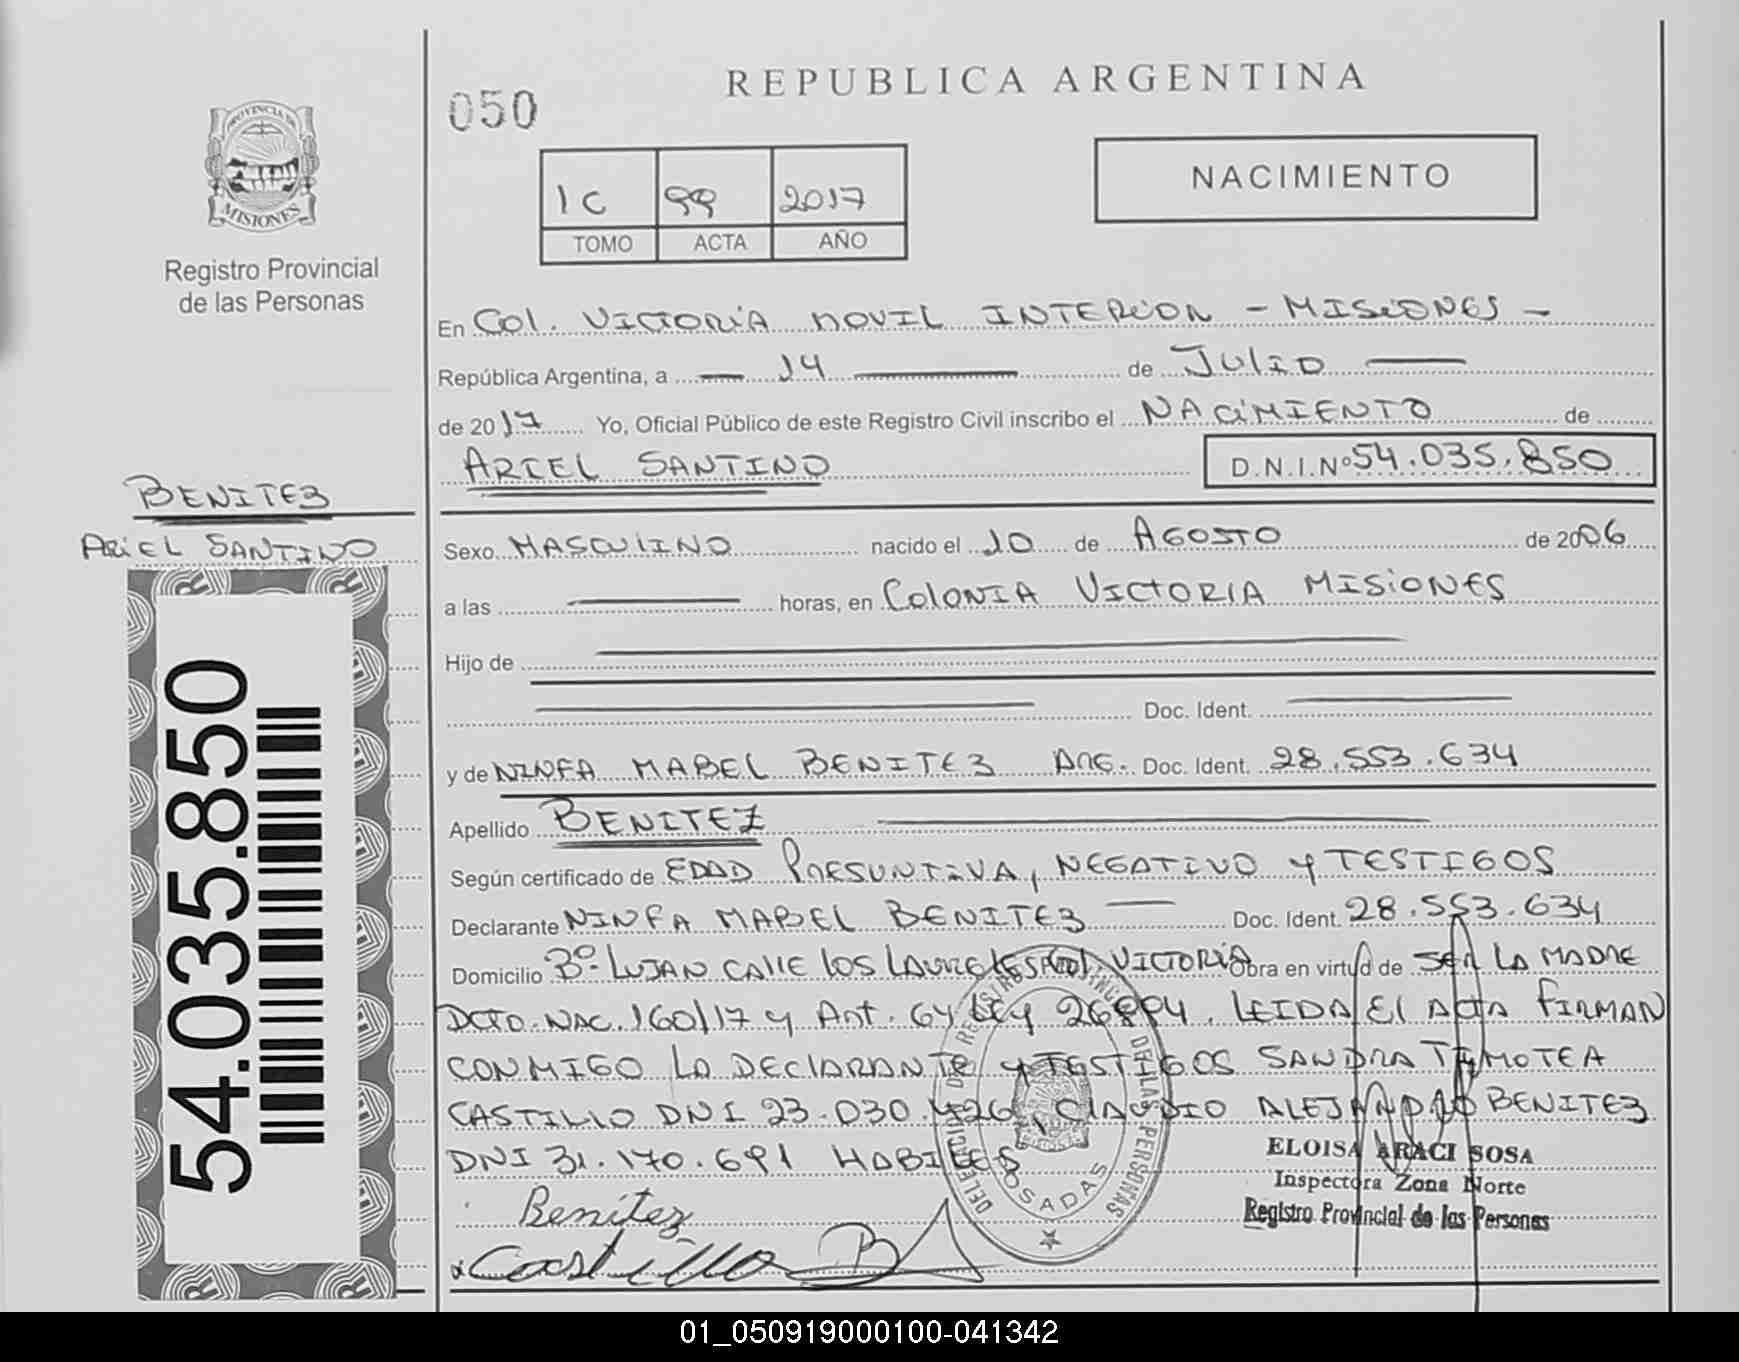 PROVINCIA DE
MISIONES
Registro Provincial
de las Personas
050
REPUBLICA ARGENTINA
1C 99 2017
TOMO ACTA AÑO
NACIMIENTO
En Col. VICTORIA MOVIL INTERIOR - MISIONES -
República Argentina, a 14 de JULIO
de 2017 Yo, Oficial Público de este Registro Civil inscribo el NACIMIENTO de
ARIEL SANTINO D.N.I.Nº 54.035.850
BENITEZ
ARIEL SANTINO
Sexo MASCULINO nacido el 10 de AGOSTO de 2006
a las horas, en COLONIA VICTORIA MISIONES
Hijo de
Doc. Ident.
y de NINFA MABEL BENITEZ ARG. Doc. Ident. 28.553.634
Apellido BENITEZ
Según certificado de EDAD PRESUNTIVA, NEGATIVO Y TESTIGOS
Declarante NINFA MABEL BENITEZ Doc. Ident. 28.553.634
Domicilio Bº- LUJAN CALLE LOS LAURELES Col VICTORIA Obra en virtud de SER LA MADRE
DCTO. NAC. 160/17 y Art. 64 Ley 26994. LEIDA El ACTA FIRMAN
CONMIGO LA DECLARANTE y TESTIGOS SANDRA TIMOTEA
CASTILLO DNI 23.030.426, CLAUDIO ALEJANDRO BENITEZ
DNI 31.170.691 HABILES
54.035.850
DELEGACION DE REGISTRO PROVINC. DE LAS PERSONAS
POSADAS
ELOISA ARACI SOSA
Inspectora Zona Norte
Registro Provincial de las Personas
Benitez
Castillo
01_050919000100-041342